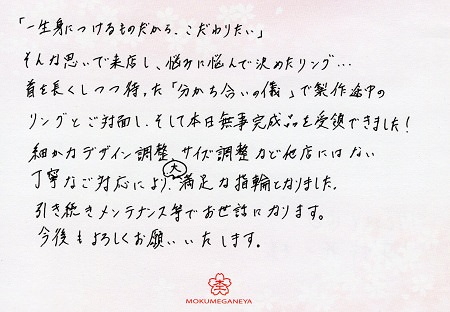 「一生身につけるものだから、こだわりたい」
そんな思いで来店し、悩みに悩んで決めたリング…
首を長くしつつ待った「分かち合いの儀」で製作途中の
リングとご対面し、そして本日無事完成品を受領できました!
細かなデザイン調整、サイズ調整など他店にはない
丁寧なご対応により、大満足な指輪となりました。
引き続きメンテナンス等でお世話になります。
今後もよろしくお願いいたします。
MOKUMEGANEYA